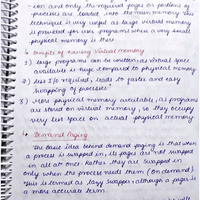 ion and only the required pages or portions of
process are loaded into the main memory. This
technique is very useful as large virtual memory
is provided for user programs when a very small
physical memory is there.
↳ benefits of having Virtual memory
1) large programs can be written, as virtual space
available is huge compared to physical memory.
2) less I/O required, leads to faster and easy
swapping of processes.
3) More physical memory available, as programs
are stored on virtual memory, so they occupy
very less space on actual physical memory
↳ Demand Paging
The basic idea behind demand paging is that when
a process is swapped in, its pages are not swapped
in all at once. Rather they are swapped in
only when the process needs them (on demand)
This is termed as lazy swapper, although a pager is
a more accurate term.